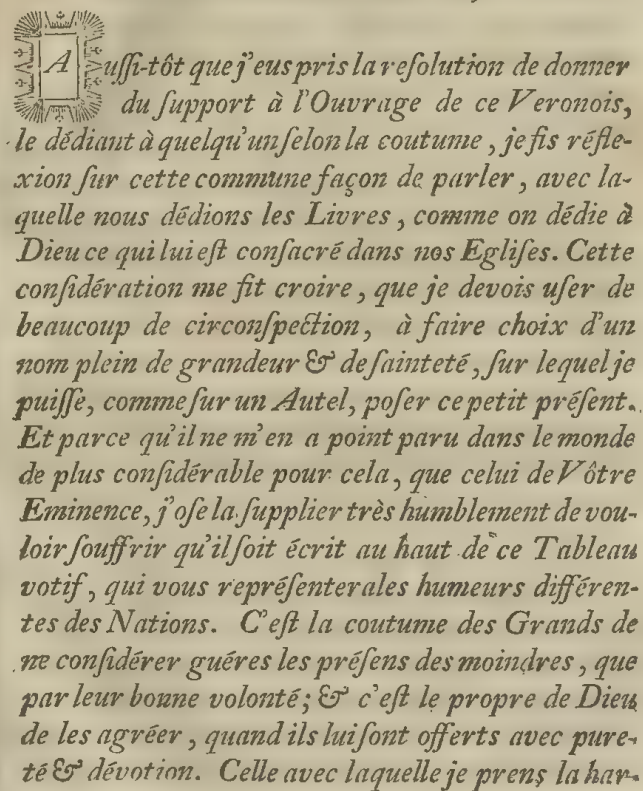 Auſſi-tôt que j'eus pris la reſolution de donner
du ſupport à l'Ouvrage de ce Veronois,
le dédiant à quelqu'un ſelon la coutume, je fis réfle-
xion ſur cette commune façon de parler, avec la-
quelle nous dédions les Livres, comme on dédie à
Dieu ce qui lui eſt conſacré dans nos Egliſes. Cette
conſidération me fit croire, que je devois uſer de
beaucoup de circonſpection, à faire choix d'un
nom plein de grandeur & de ſainteté, ſur lequel je
puiſſe, comme ſur un Autel, poſer ce petit préſent.
Et parce qu'il ne m'en a point paru dans le monde
de plus conſidérable pour cela, que celui de Vôtre
Eminence, j'oſe la ſupplier très humblement de vou-
loir ſouffrir qu'il ſoit écrit au haut de ce Tableau
votif, qui vous repréſentera les humeurs différen-
tes des Nations. C'eſt la coutume des Grands de
ne conſidérer guéres les préſens des moindres, que
par leur bonne volonté; & c'eſt le propre de Dieu
de les agréer, quand ils lui ſont offerts avec pure-
té & dévotion. Celle avec laquelle je prens la har-